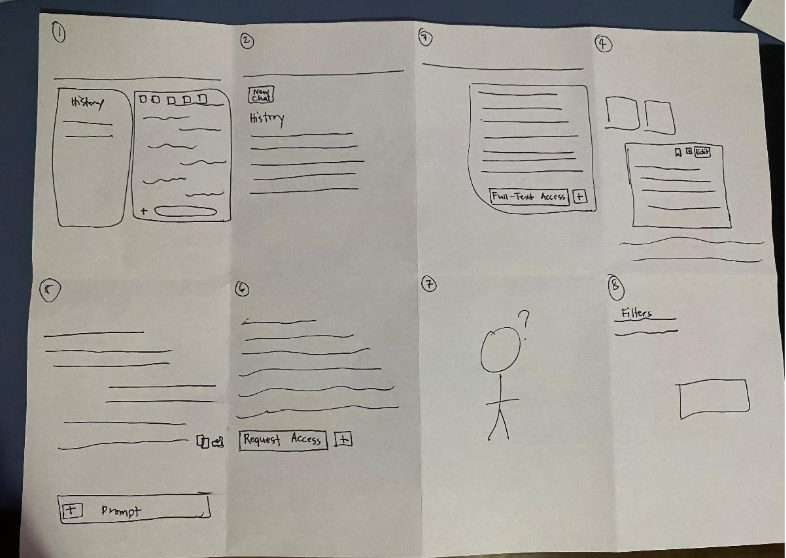 1
History
+
2
New
Chat
History
3
Full-Text Access +
4
Edit
5
+ Prompt
6
Request Access +
7
?
8
Filters